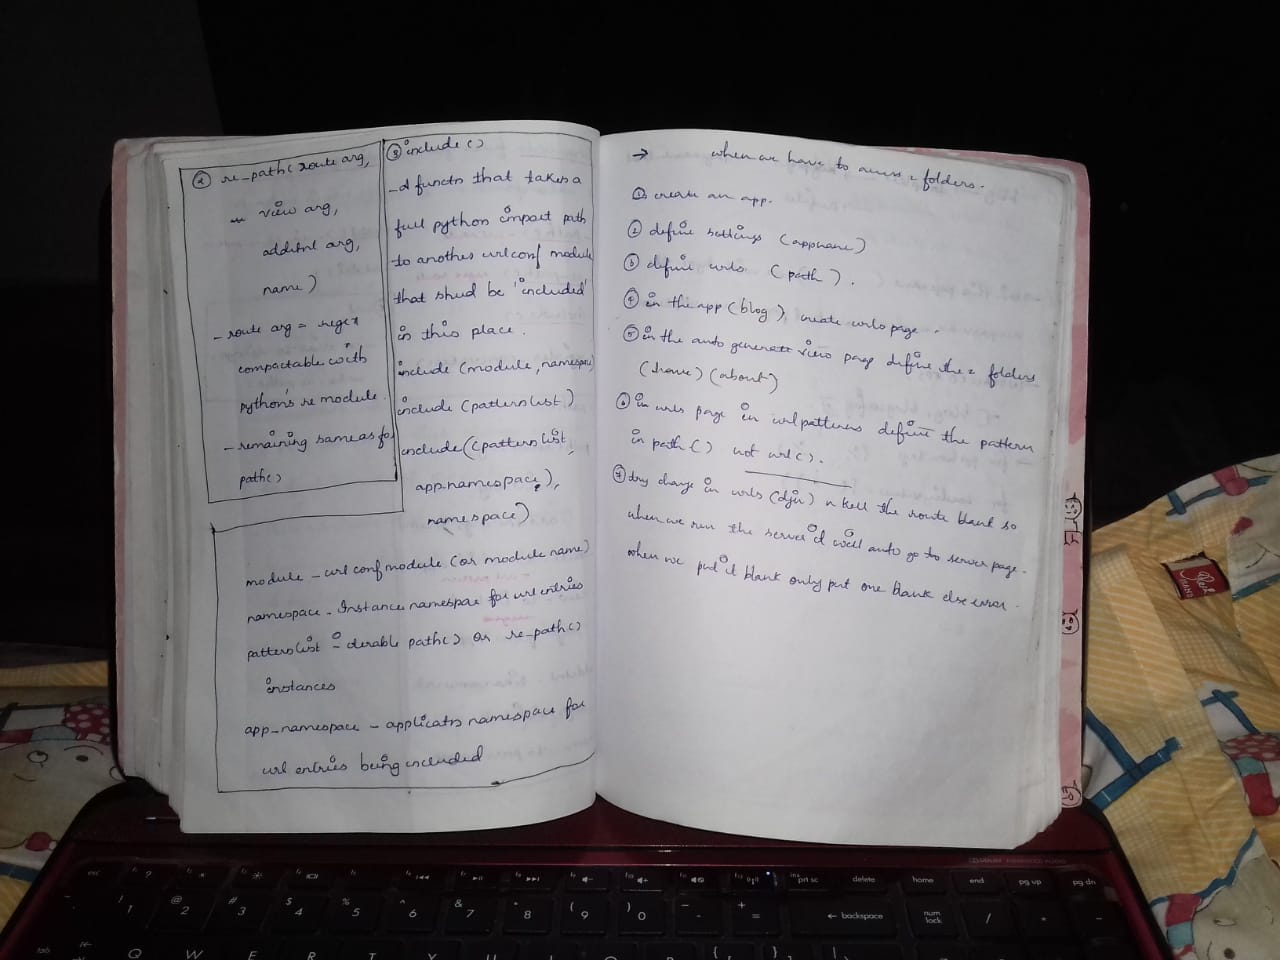 ② re-path(route arg,
view arg,
additnl arg,
name)
- route arg = regex
compactable with
python's re module.
- remaining same as for
path()
③ include()
functn that takes a
full python import path
to another urlconf module
that shud be 'included'
in this place.
include (module, namespace)
include (patternlist)
include((patternlist,
app-namespace),
namespace)
module - urlconf module (or module name)
namespace - Instance namespace for url entries
patternlist - iterable path() or re-path()
instances
app-namespace - applicatn namespace for
url entries being included
→ when we have to access 2 folders.
① create an app.
② define settings (appname)
③ define urls (path).
④ in the app (blog) create urls page.
⑤ in the auto generate view page define the 2 folders
(home) (about)
⑥ in urls page in urlpatterns define the pattern
in path() not url().
⑦ any change in urls n the route blank so
when we run the server it will auto go to server page.
when we put it blank only put one blank else error.
esc
prt sc
delete
home
end
pg up
pg dn
! 1
@ 2
# 3
$ 4
% 5
^ 6
& 7
* 8
( 9
) 0
- -
+ =
← backspace
num
lock
/
*
-
tab
Q W E R T Y U I O P